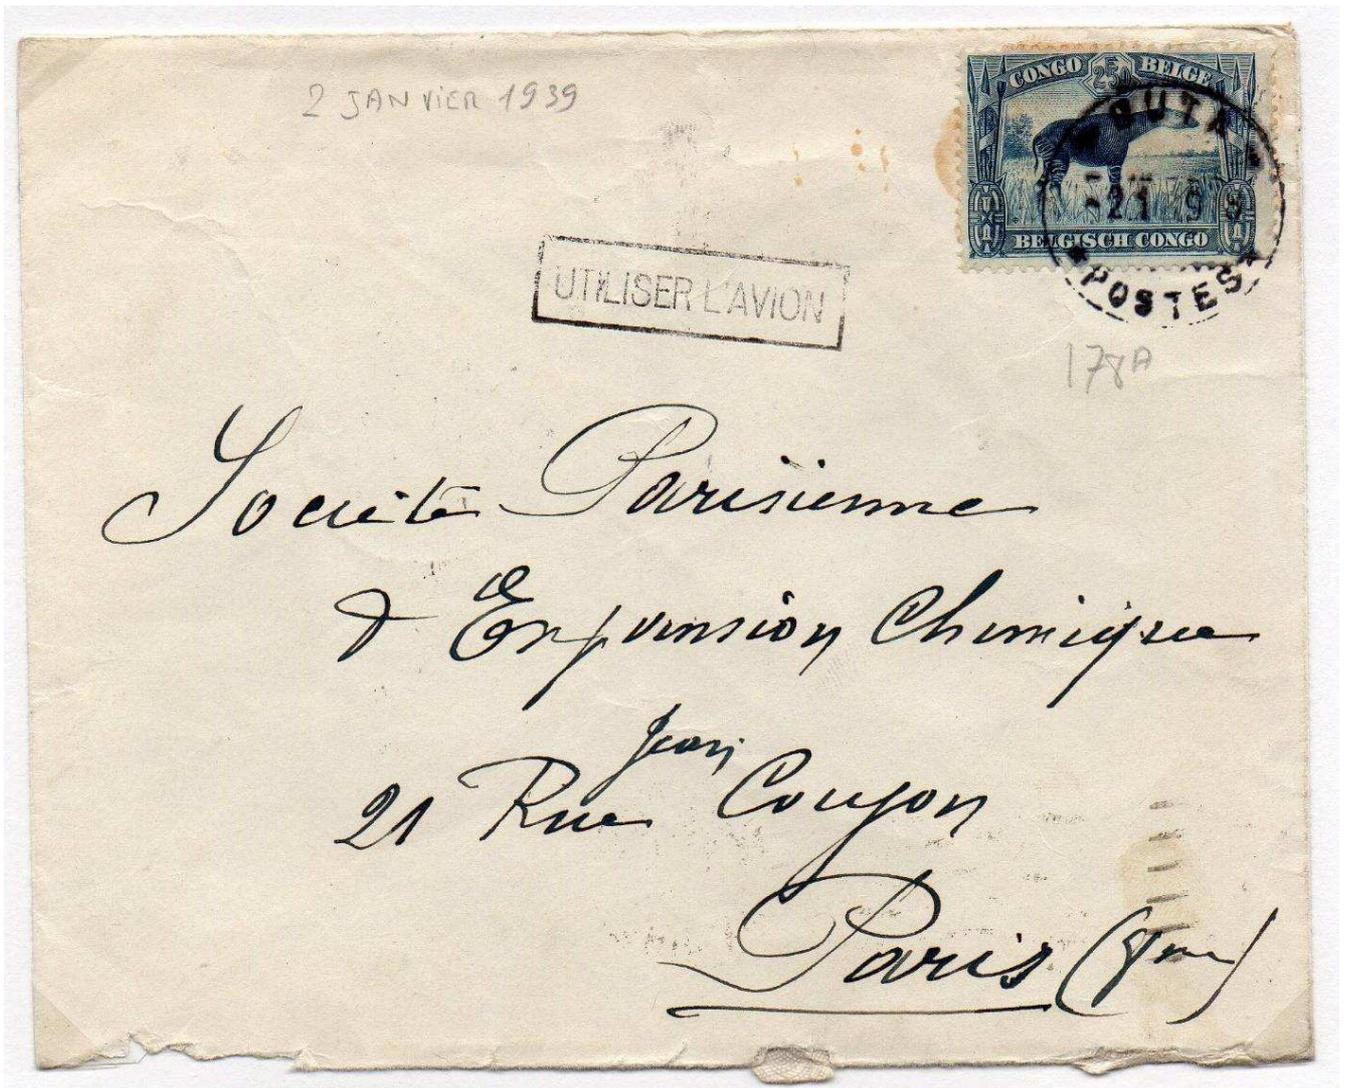 2 JANVIER 1939
CONGO BELGE
BELGISCH CONGO
BUTA
POSTES
UTILISER L'AVION
178A
Société Parisienne
d'Expansion Chimique
Jean
21 Rue Coujon
Paris (8me)